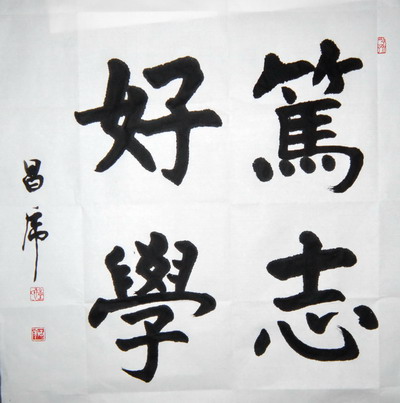 篤志
好學
昌席